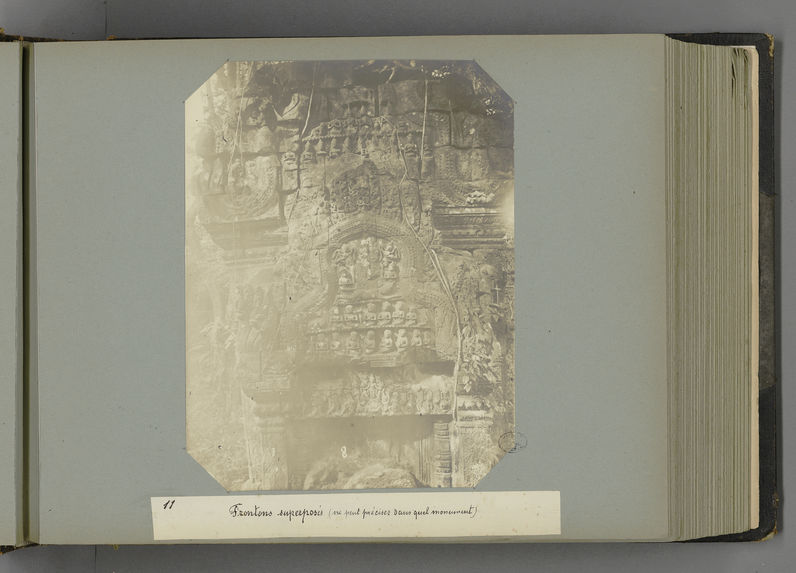 8
11
Frontons superposés (ne peut préciser dans quel monument)